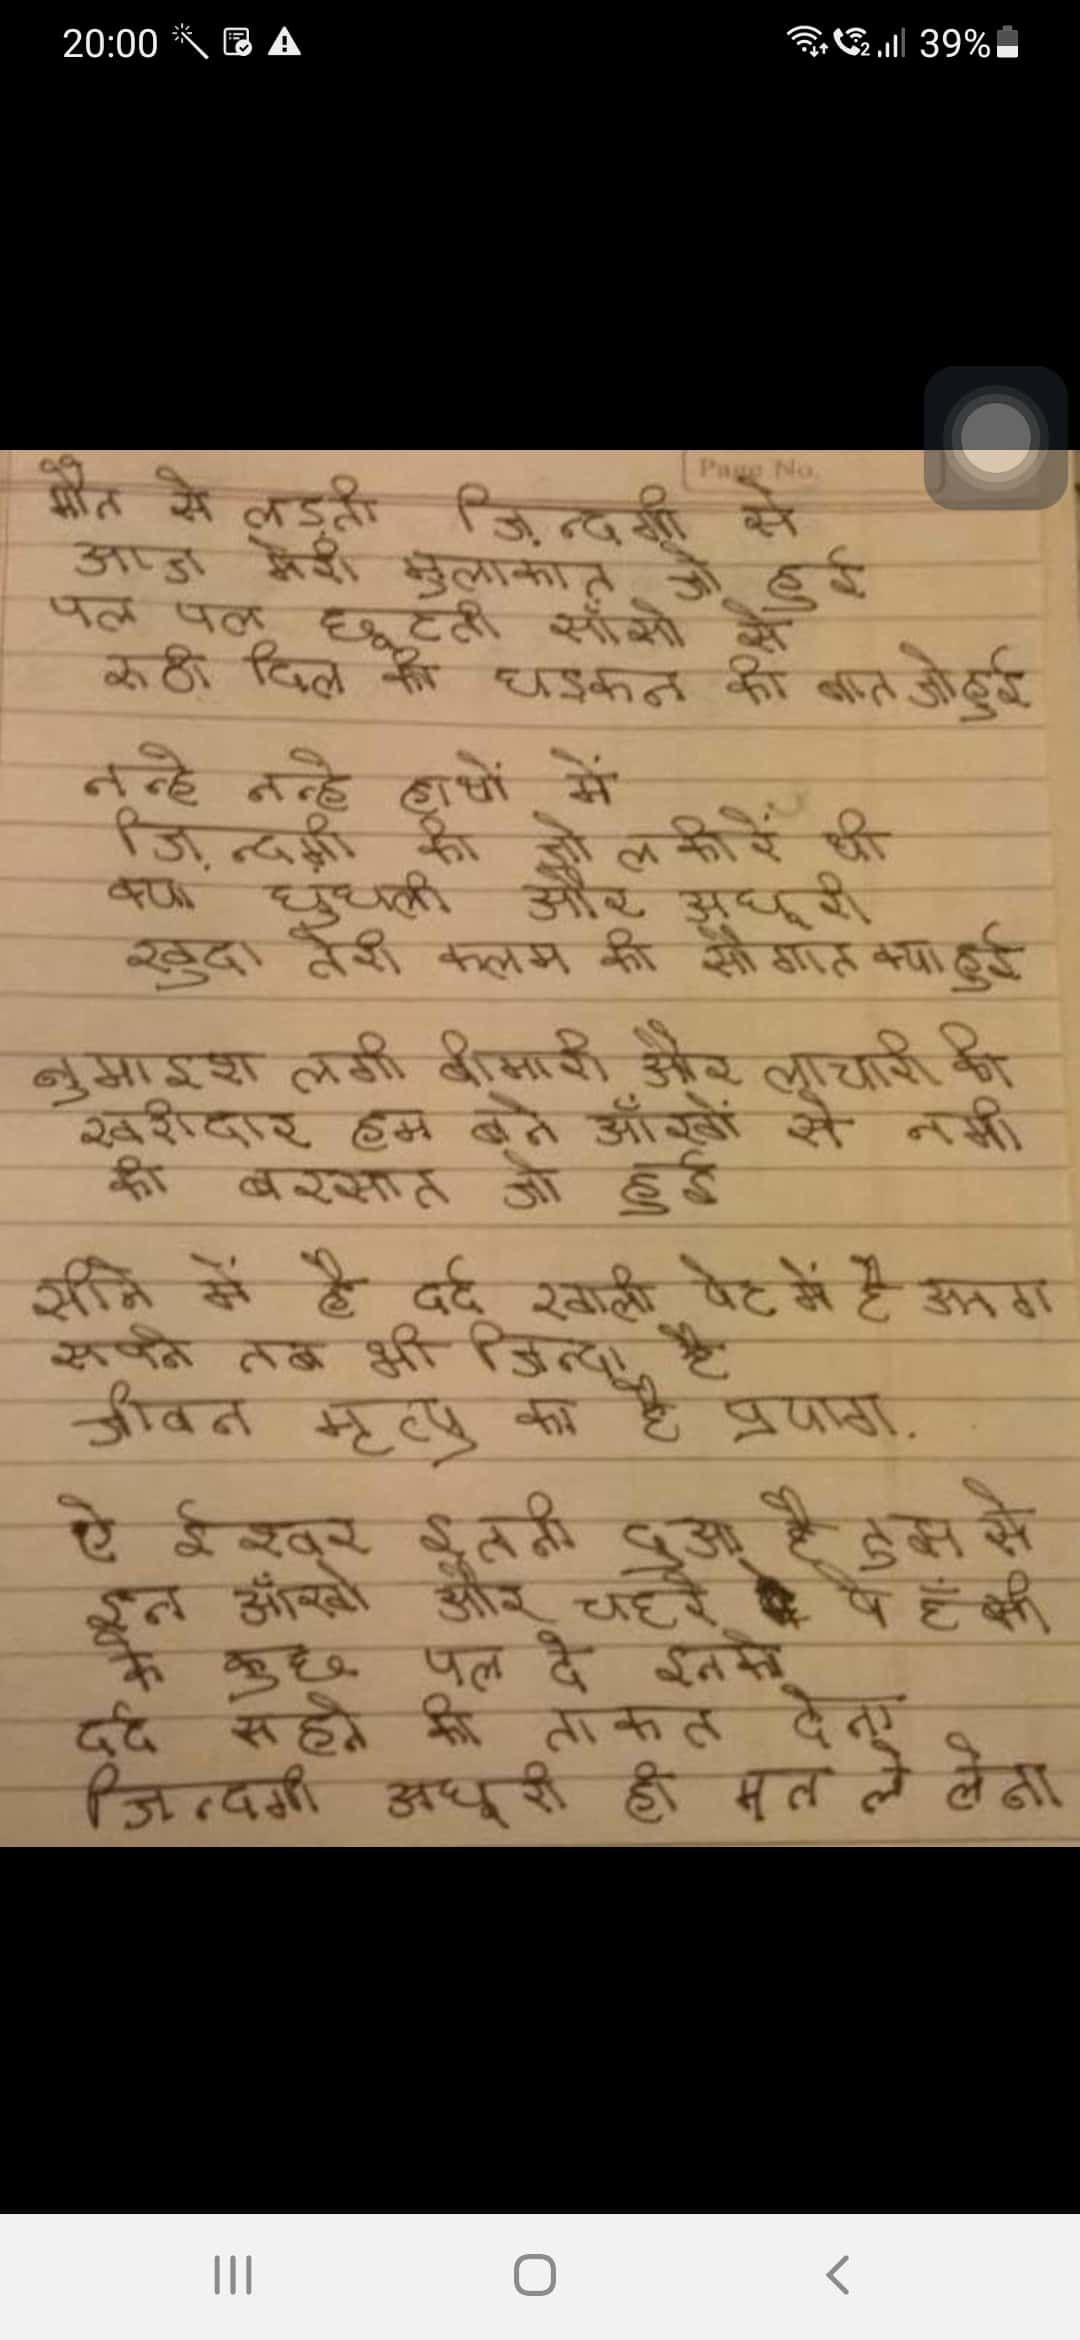 20:00
39%
Page No.
मौत से लड़ती ज़िन्दगी से
आज मेरी मुलाकात जो हुई
पल पल छूटती साँसो से
रुठी दिल की धडकन की बात जो हुई
नन्हे नन्हे हाथों में
ज़िन्दगी की जो लकीरें थी
क्या धुधली और अधूरी
खुदा तेरी कलम की सौगात क्या हुई
नुमाइश लगी बीमारी और लाचारी की
खरीदार हम बने आँखों से नमी
की बरसात जो हुई
सीने में है दर्द खाली पेट में है आग
सपने तब भी जिन्दा है
जीवन मृत्यु का है प्रयाग.
ऐ ईश्वर इतनी दुआ है तुम से
इन आँखो और चहरे पे हँसी
के कुछ पल दे इनको
दर्द सहने की ताकत देना
जिन्दगी अधूरी ही मत ले लेना